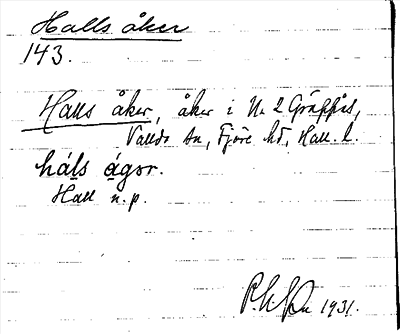 Halls åker
143.
Halls åker, åker i Nr 2 Gräppås,
Valda sn, Fjäre hd, Hall. l.
håls ågər.
Hall n.p.
1931.